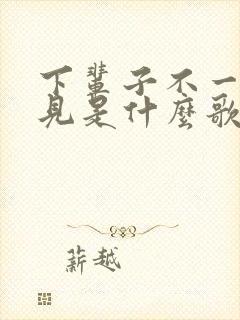 下輩子不一
見是什麼歌
薪越